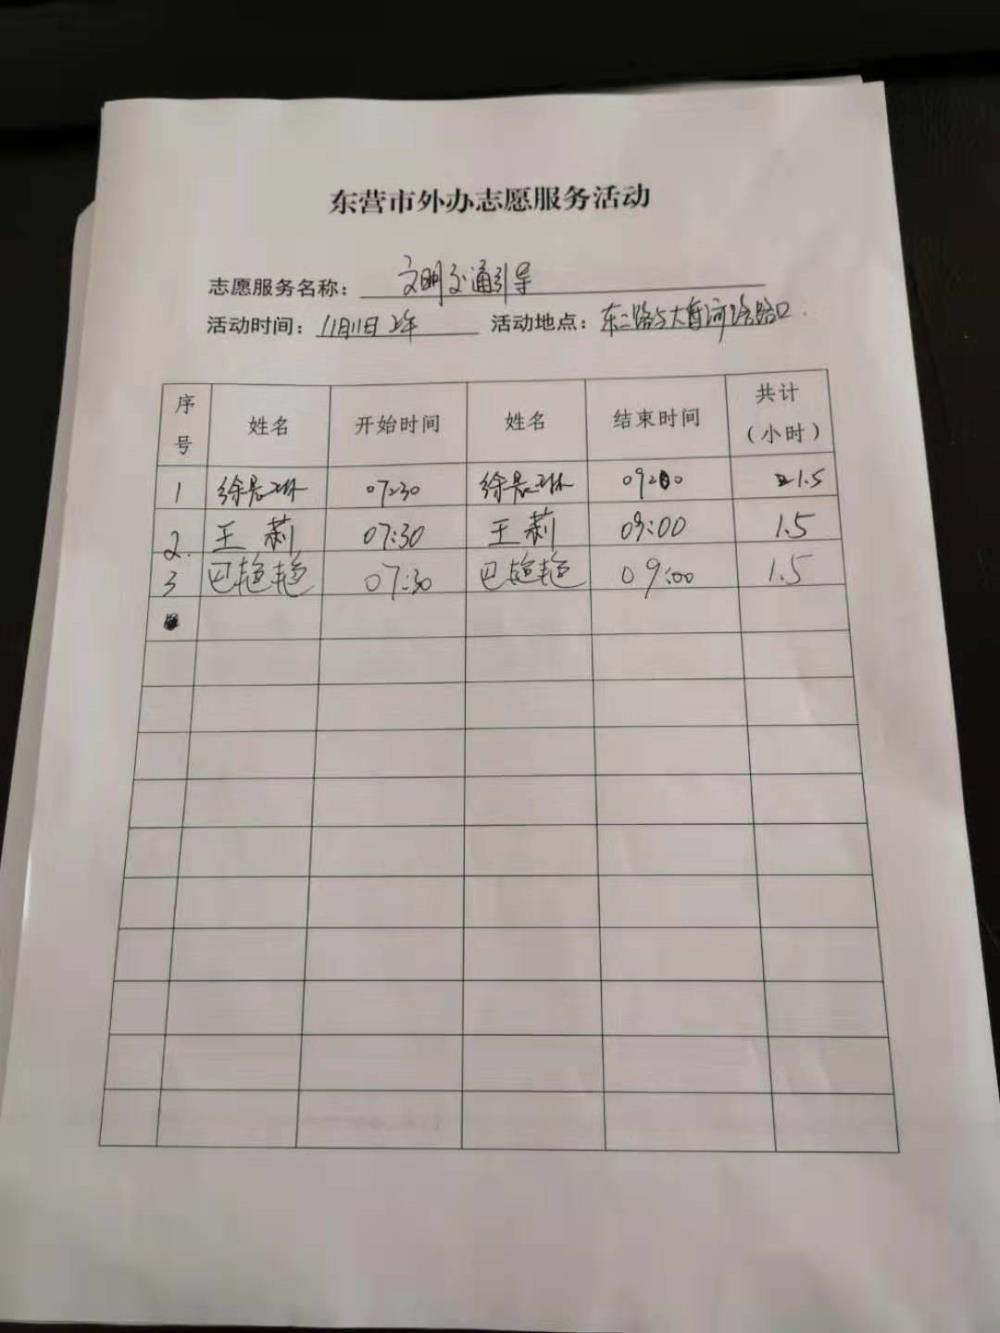 东营市外办志愿服务活动
志愿服务名称：文明交通引导
活动时间：11月11日上午 活动地点：东二路与大渡河路路口
序号 姓名 开始时间 姓名 结束时间 共计（小时）
1 徐晨琳 07:30 徐晨琳 09:00 1.5
2. 王莉 07:30 王莉 09:00 1.5
3 巴艳艳 07:30 巴艳艳 09:00 1.5